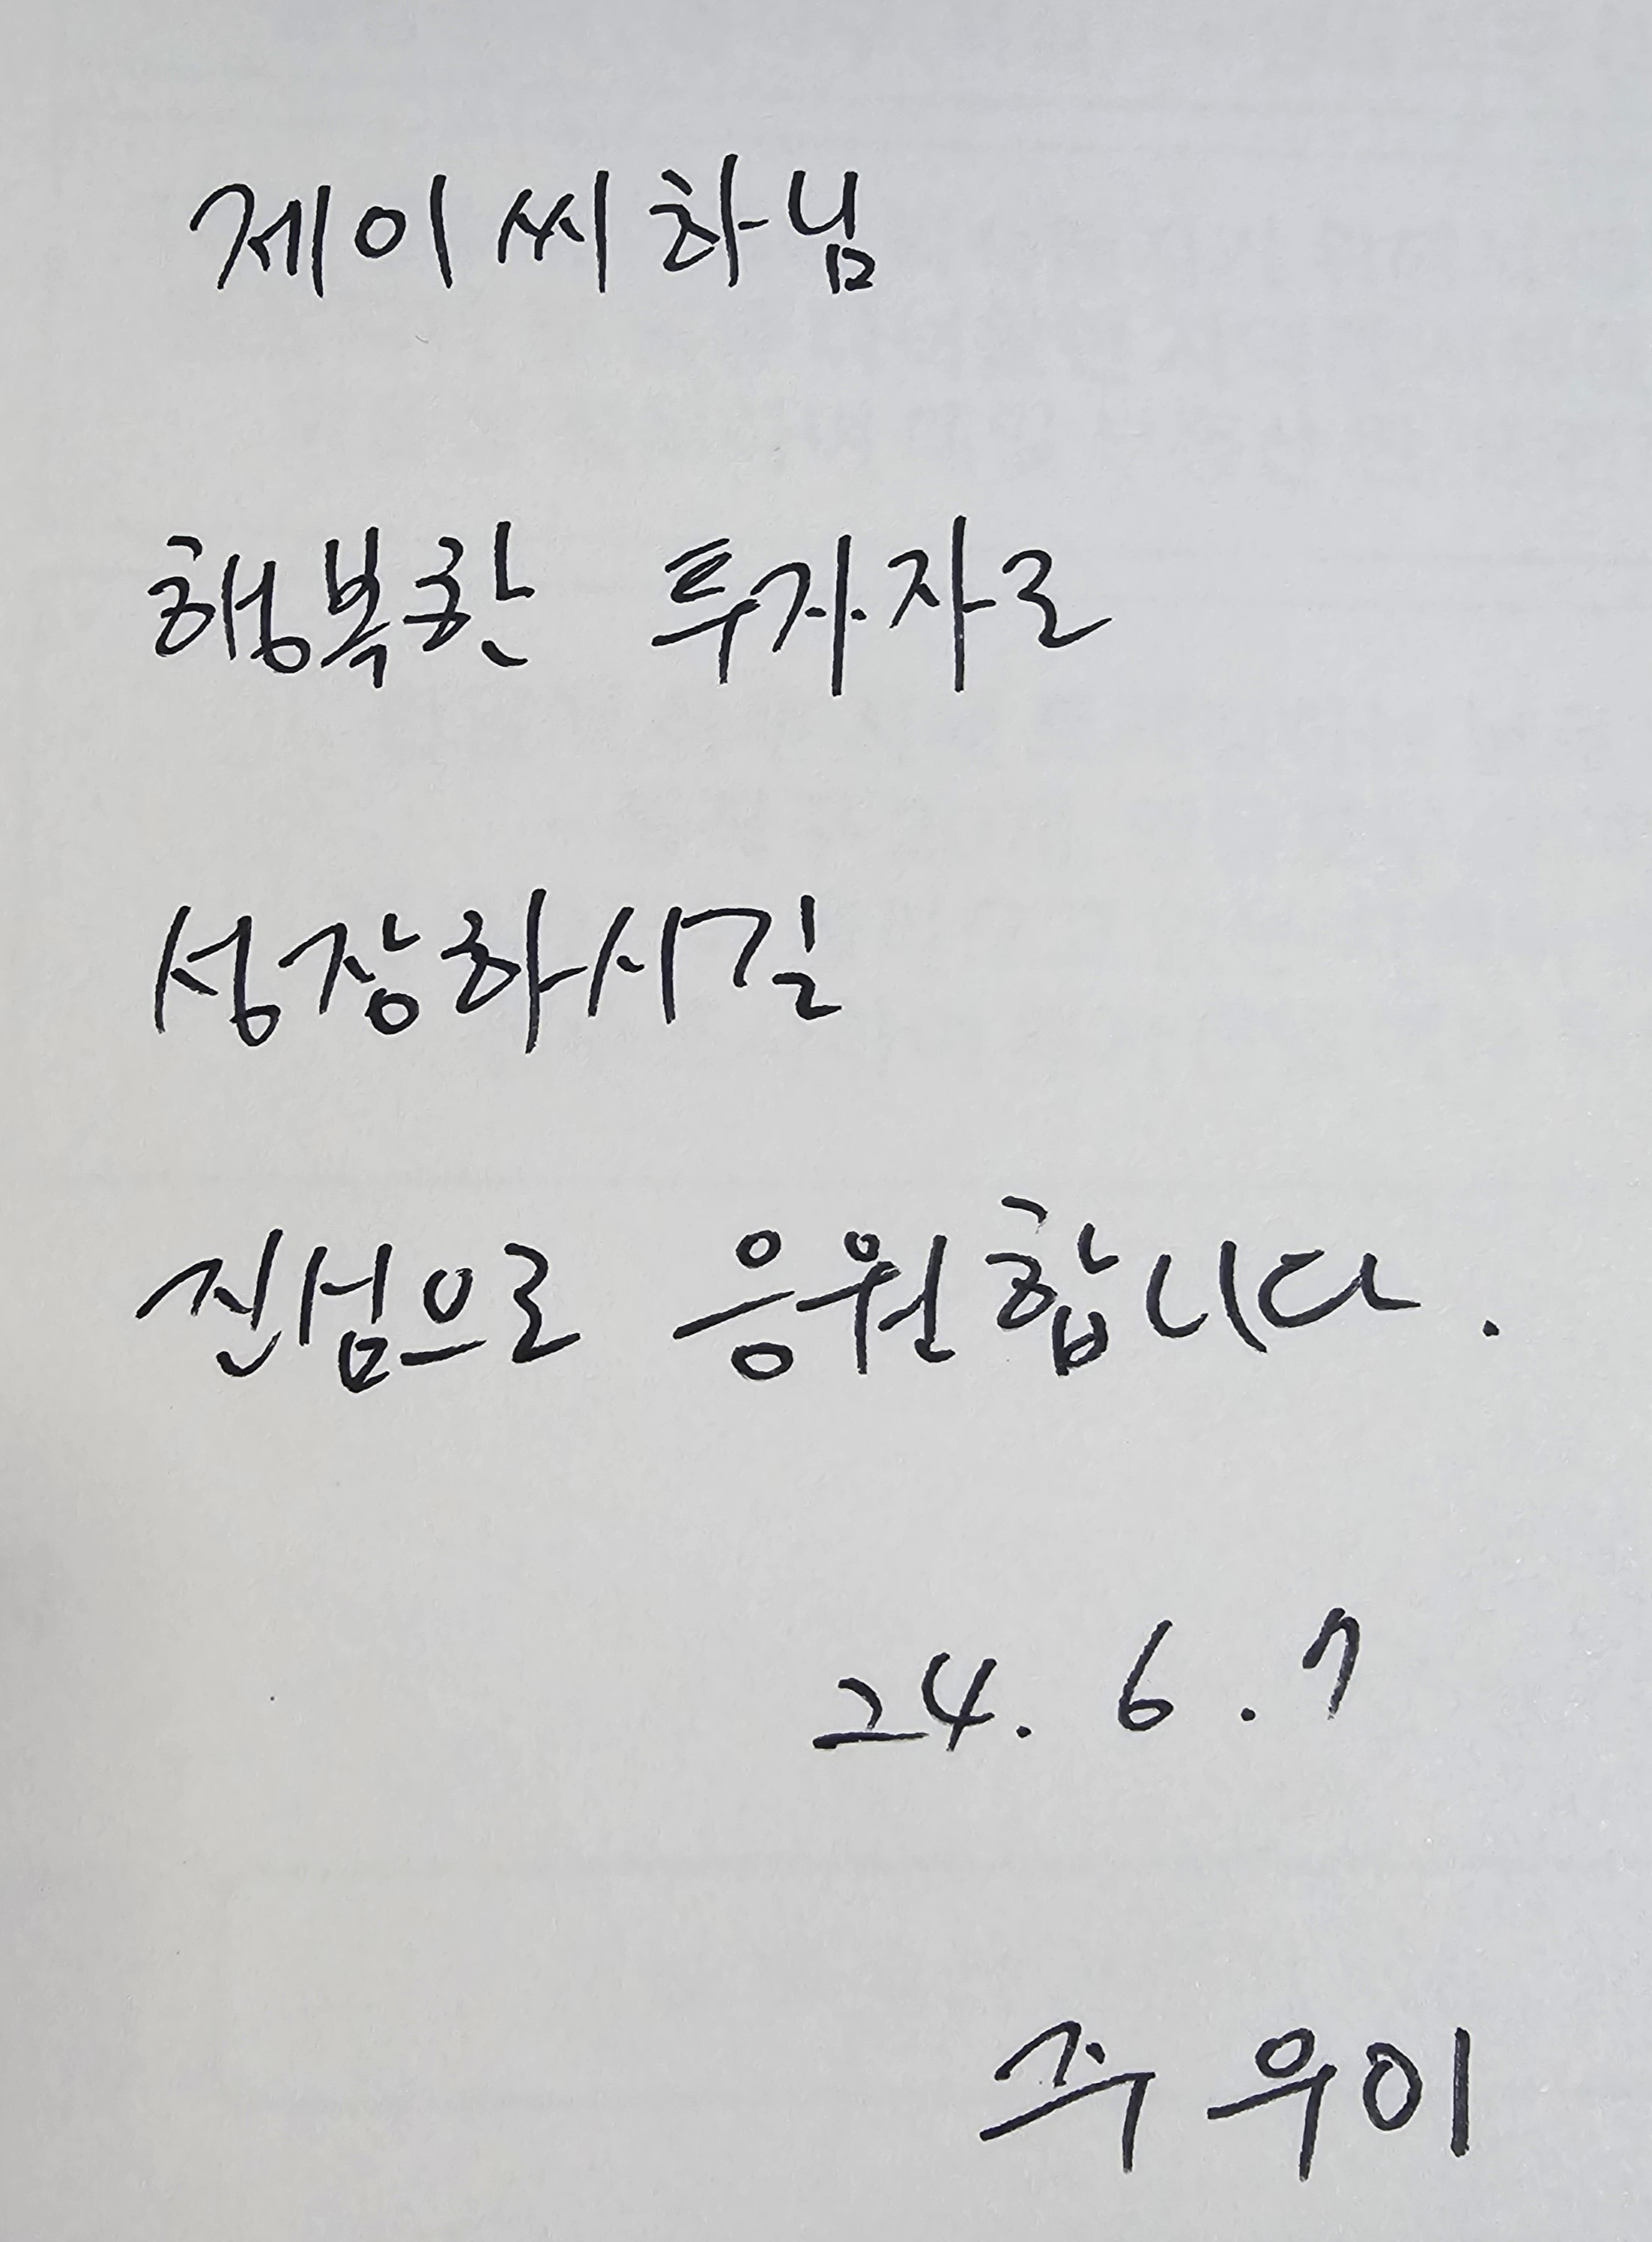 제이씨하님
행복한 투자자로
성장하시길
진심으로 응원합니다.
24. 6. 7
쑤우이